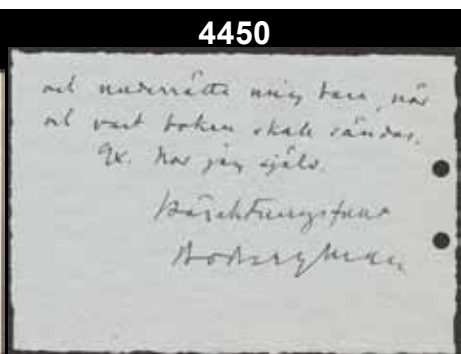 4450
och underrätta mig bara, när
och vart boken skall sändas.
Ex. har jag själv.
Högaktningsfullt
Bo Bergman